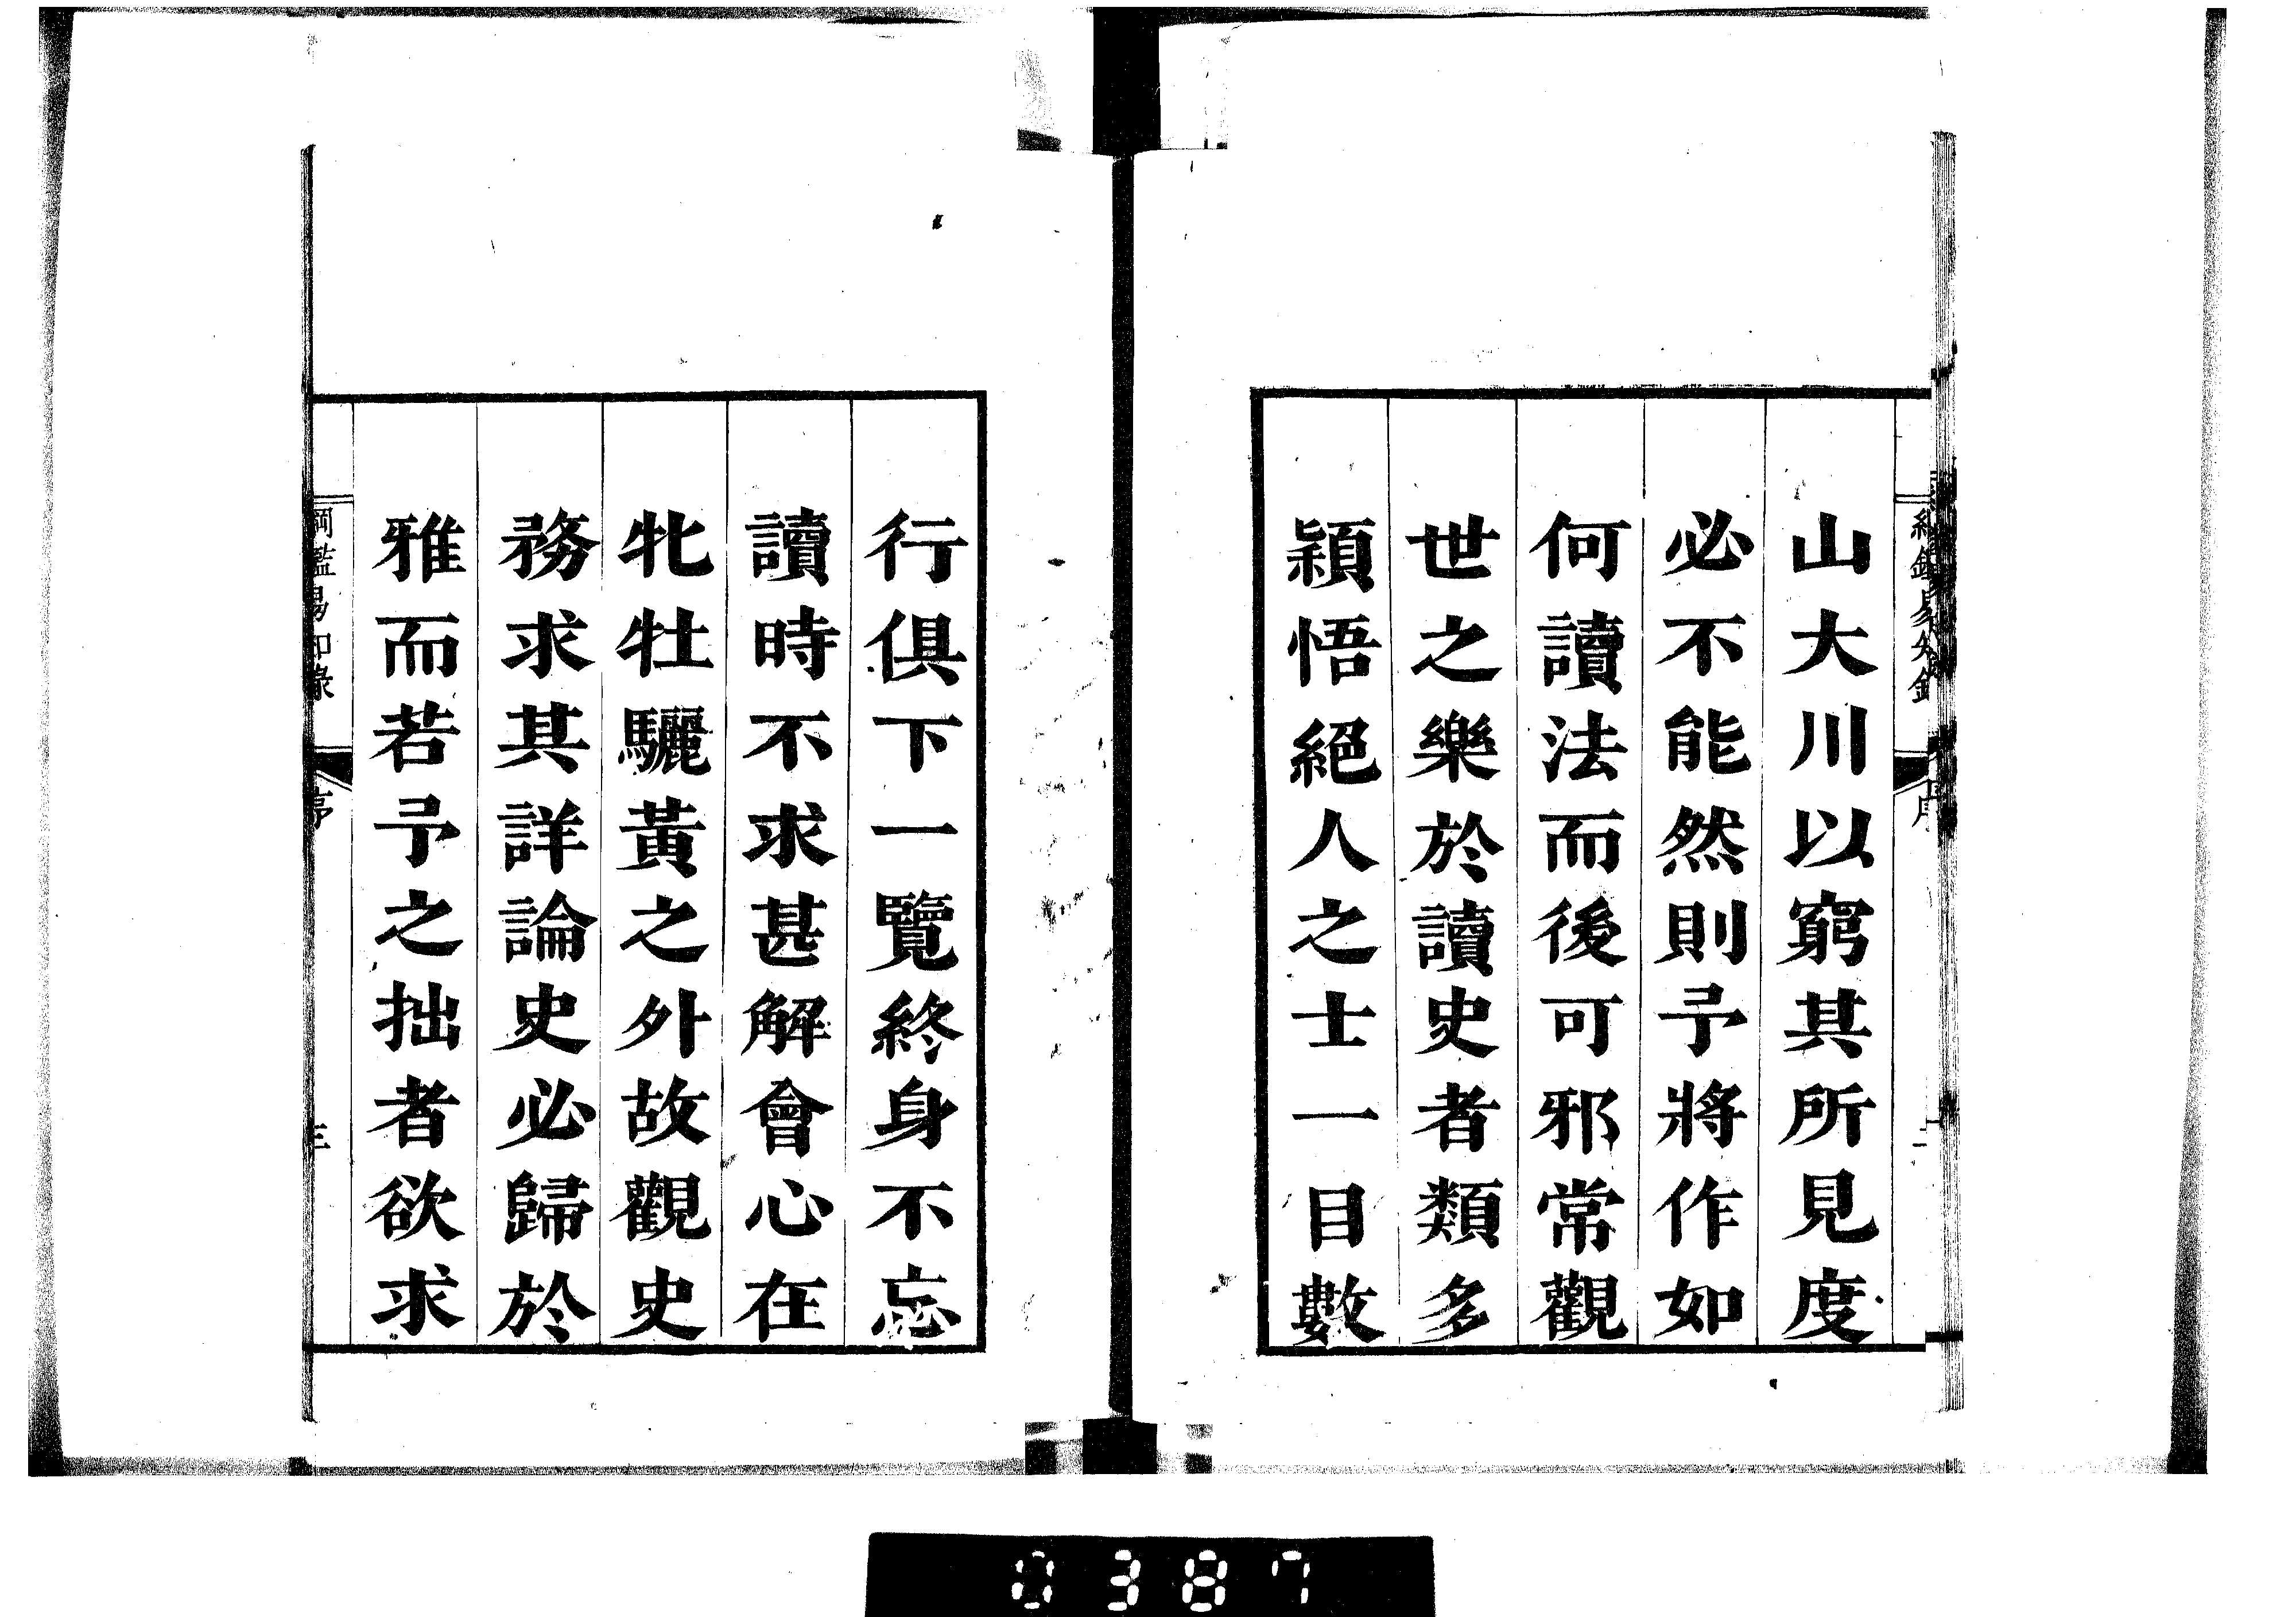 山大川以窮其所見度
必不能然則予將作如
何讀法而後可邪常觀
世之樂於讀史者類多
穎悟絕人之士一目數
行俱下一覽終身不忘
讀時不求甚解會心在
牝牡驪黃之外故觀史
務求其詳論史必歸於
雅而若予之拙者欲求
綱鑑易知錄
序
三
0387